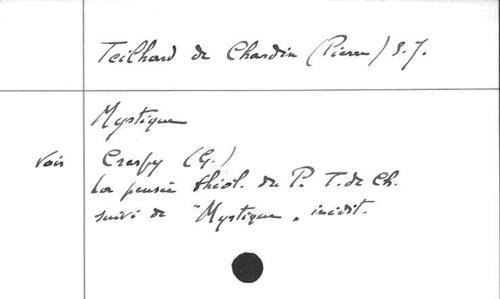 Teilhard de Chardin (Pierre) S.J.
Mystique
Voir Crespy (G.)
La pensée théol. du P. T. de Ch.
suivi de "Mystique", inédit.